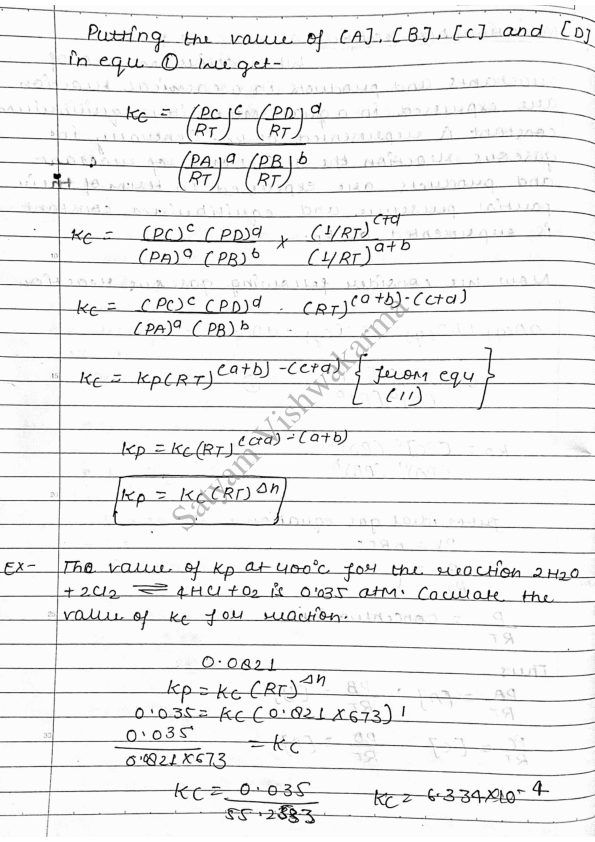 Putting the value of [A], [B], [C] and [D]
in equ ① we get-
Kc = (PC/RT)^c (PD/RT)^d / (PA/RT)^a (PB/RT)^b
Kc = (PC)^c (PD)^d / (PA)^a (PB)^b × (1/RT)^c+d / (1/RT)^a+b
Kc = (PC)^c (PD)^d / (PA)^a (PB)^b . (RT)^(a+b)-(c+d)
Kc = Kp(RT)^(a+b)-(c+d) { from equ (11) }
Kp = Kc(RT)^(c+d)-(a+b)
Kp = Kc(RT)^Δn
EX- The value of Kp at 400°c for the reaction 2H2O
+ 2Cl2 ⇌ 4HCl + O2 is 0.035 atm. Caculate the
value of Kc for reaction.
0.0821
Kp = Kc (RT)^Δn
0.035 = Kc(0.0821×673)^1
0.035 / 0.0821×673 = Kc
Kc = 0.035 / 55.2533 Kc = 6.334×10^-4
Satyam Vishwakarma